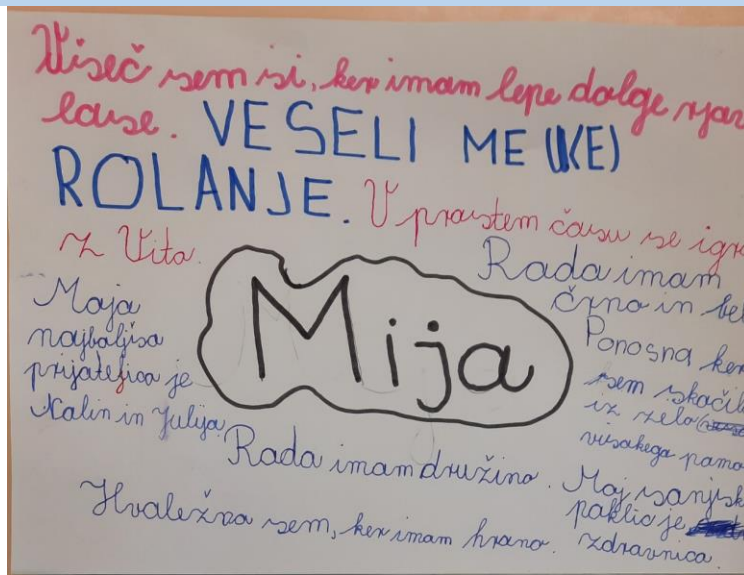 Všeč sem si, ker imam lepe dolge rjav
lase. VESELI ME (KE)
ROLANJE. V prostem času se igr
z Vito.
Rada imam
črno in bel
Moja
najboljša
prijateljica je
Kalin in Julija
Mija
Ponosna ker
sem skočil
iz zelo
visokega pomo
Rada imam družino.
Moj sanjsk
poklic je
zdravnica.
Hvaležna sem, ker imam hrano.